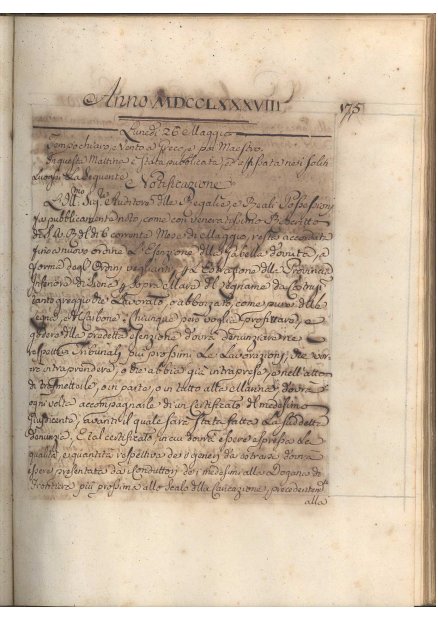 Anno MDCCLXXXVIII
175
Lunedì 26 Maggio
Tempo chiaro, Vento a Greco, e poi Maestro
In questa Mattina è stata pubblicata, ed affissata nei soliti
Luoghi La Seguente
Notificazione
Auditore delle Regalie, e Reali Possessioni
fa pubblicamente noto, come con venerato
di 6 corrente Mese di Maggio, resta accordata
fino a nuovo ordine L'esenzione della Gabella dovuta, a
forma degl'Ordini veglianti, per l'estrazione dalla Provincia
Inferiore di Siena, per Mare del Legname da
tanto greggio che Lavorato, o abbozzato, come pure della
Legna, e Carbone; Chiunque però voglia profittare, e
godere della predetta esenzione dovrà denunziare ne
respettivi Tribunali più prossimi Le Lavorazioni, che
intraprendere, o che abbia già intraprese, e nell'atto
di trasmetterle, o in parte, o in tutto alla Marina dovrà
ogni volta accompagnarle di un Certificato del medesimo
Giusdicente, avanti il quale sarà stata fatta La suddetta
denunzia, E tal certificato in cui dovrà essere espressa La
qualità, e quantità respettiva dei generi da estrarsi dovrà
essere presentata da Conduttori dei medesimi alla Dogana di
Frontiera più prossima allo Scalo della Caricazione, precedentem.te
alla